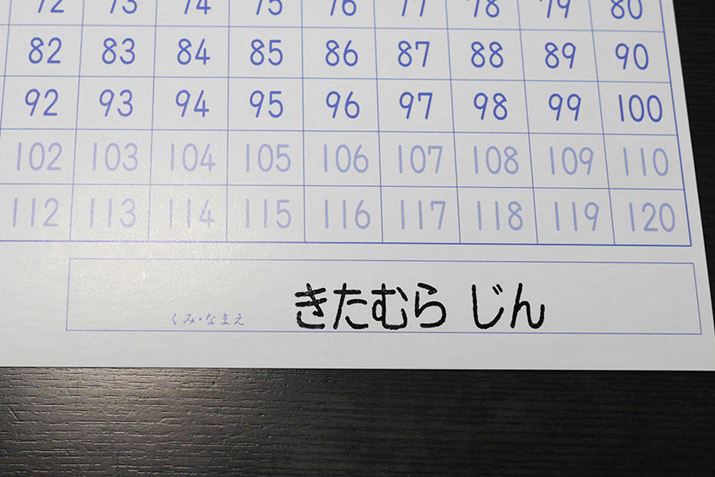 72 73 74 75 76 77 78 79 80
82 83 84 85 86 87 88 89 90
92 93 94 95 96 97 98 99 100
102 103 104 105 106 107 108 109 110
112 113 114 115 116 117 118 119 120
くみ・なまえ きたむら じん